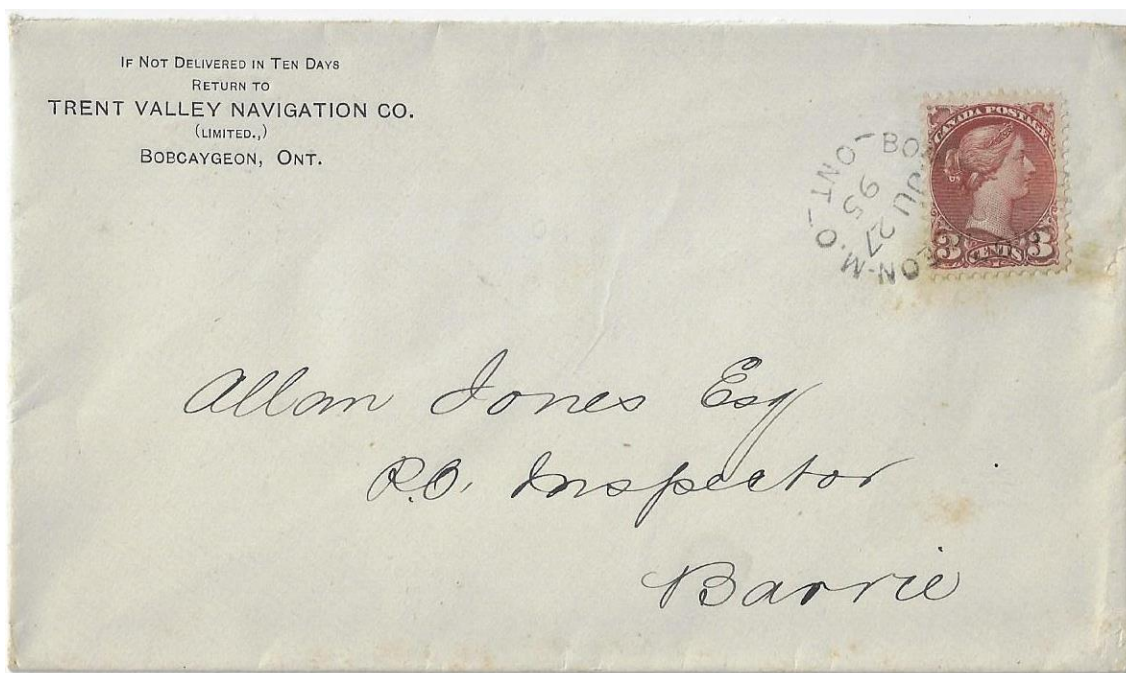 IF NOT DELIVERED IN TEN DAYS
RETURN TO
TRENT VALLEY NAVIGATION CO.
(LIMITED.,)
BOBCAYGEON, ONT.
CANADA POSTAGE
3 CENTS 3
ONT
JU 27
95
Allan Jones Esq
P.O. Inspector
Barrie